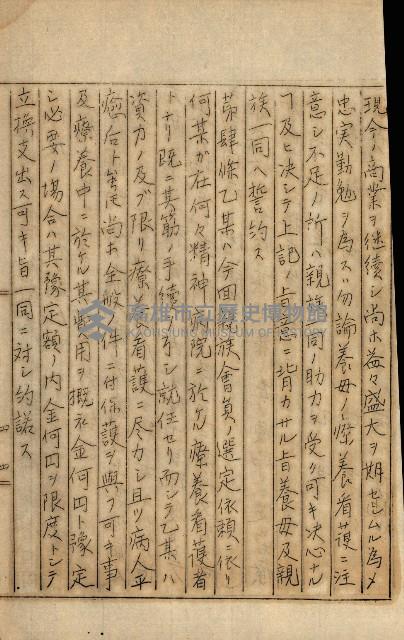 現今ノ商業ヲ継続シ尚ホ益々盛大ヲ期セシムル為メ
忠実勤勉ヲ為スハ勿論養母ノ療養看護ニ注
意シ不足ノ許ハ親族一同ノ助力ヲ受ク可キ決心ナル
ヿ及ヒ決シテ上記ノ旨意ニ背カサル旨養母及親
族一同ヘ誓約ス
第肆條乙某ハ今回親族會員ノ選定依頼ニ依リ
何某ガ在何々精神病院ニ於ケル療養看護者
トナリ既ニ其筋ノ手続ヲナシ就任セリ而シテ乙某ハ
資力ノ及ブ限リ療養看護ニ尽力シ且ツ病人平
癒后ト雖尚ホ全般ノ件ニ付保護ヲ與フ可キ事
及療養中ニ於ケル其費用ヲ概ネ金何円ト豫定
シ必要ノ場合ハ其豫定額ノ内金何円ヲ限度トシテ
立換支出ス可キ旨一同ニ対シ約諾ス
高雄市立歷史博物館
KAOHSIUNG MUSEUM OF HISTORY